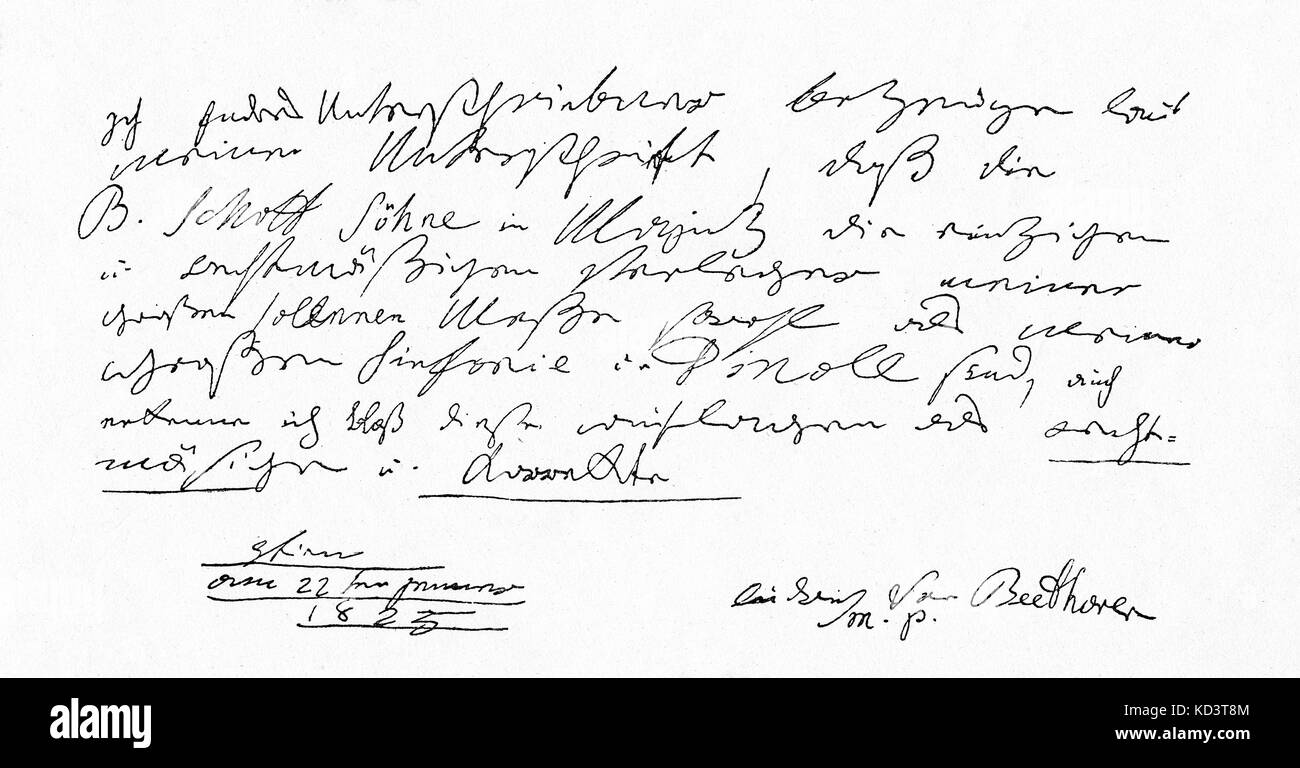 Ich Endes Unterschriebener bezeuge laut
meiner Unterschrift, daß die
B. Schott Söhne in Maynz die einzigen
u. rechtmäßigen Verleger meiner
großen solennen Meße sowohl als meiner
großen Sinfonie in D moll sind, auch
erkenne ich bloß diese auflagen als recht=
mäßige u. Korrekte
Wien
am 22ten jenner
1825
ludwig van Beethoven
m. p.
alamy
Image ID: KD3T8M
www.alamy.com